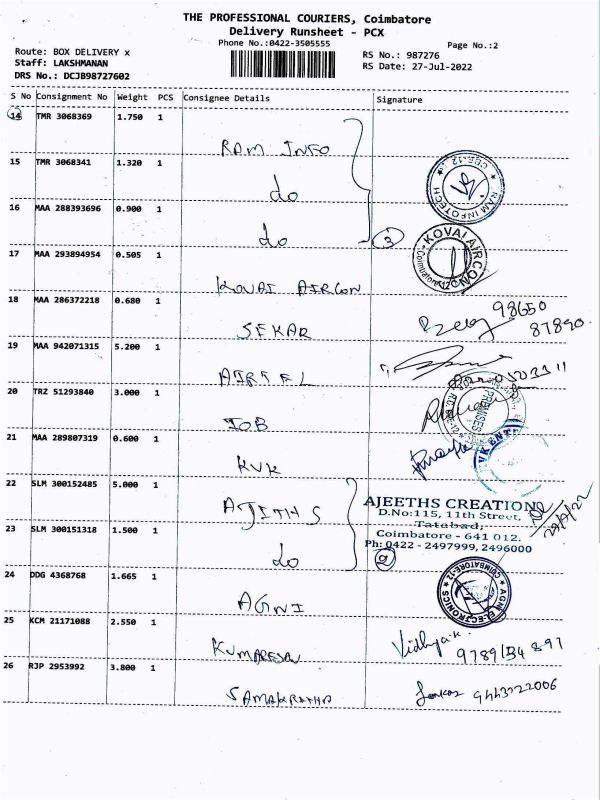 THE PROFESSIONAL COURIERS, Coimbatore
Delivery Runsheet - PCX
Phone No.:0422-3505555
Page No.:2
Route: BOX DELIVERY x
RS No.: 987276
Staff: LAKSHMANAN
RS Date: 27-Jul-2022
DRS No.: DCJB98727602
S No Consignment No Weight PCS Consignee Details Signature
14 TMR 3068369 1.750 1
RAM INFO
15 TMR 3068341 1.320 1
do
CBE-12
RAM INFOTECH
16 MAA 288393696 0.900 1
do
3
17 MAA 293894954 0.505 1
KOVAI AIRCON
KOVAI AIRCON
Coimbatore-12
18 MAA 286372218 0.680 1
SEKAR
98650
87890
19 MAA 942071315 5.200 1
AIRTEL
20 TRZ 51293840 3.000 1
IOB
PROMISES
21 MAA 289807319 0.600 1
KVK
22 SLM 300152485 5.000 1
AJITHS
AJEETHS CREATION
D.No:115, 11th Street,
Tatabad,
Coimbatore - 641 012.
Ph: 0422 - 2497999, 2496000
23 SLM 300151318 1.500 1
do
2
24 DDG 4368768 1.665 1
AGNI
COIMBATORE-12
AGNI ELECTRONICS
25 KCM 21171088 2.550 1
KUMARESAN
26 RJP 2953992 3.800 1
9443722006